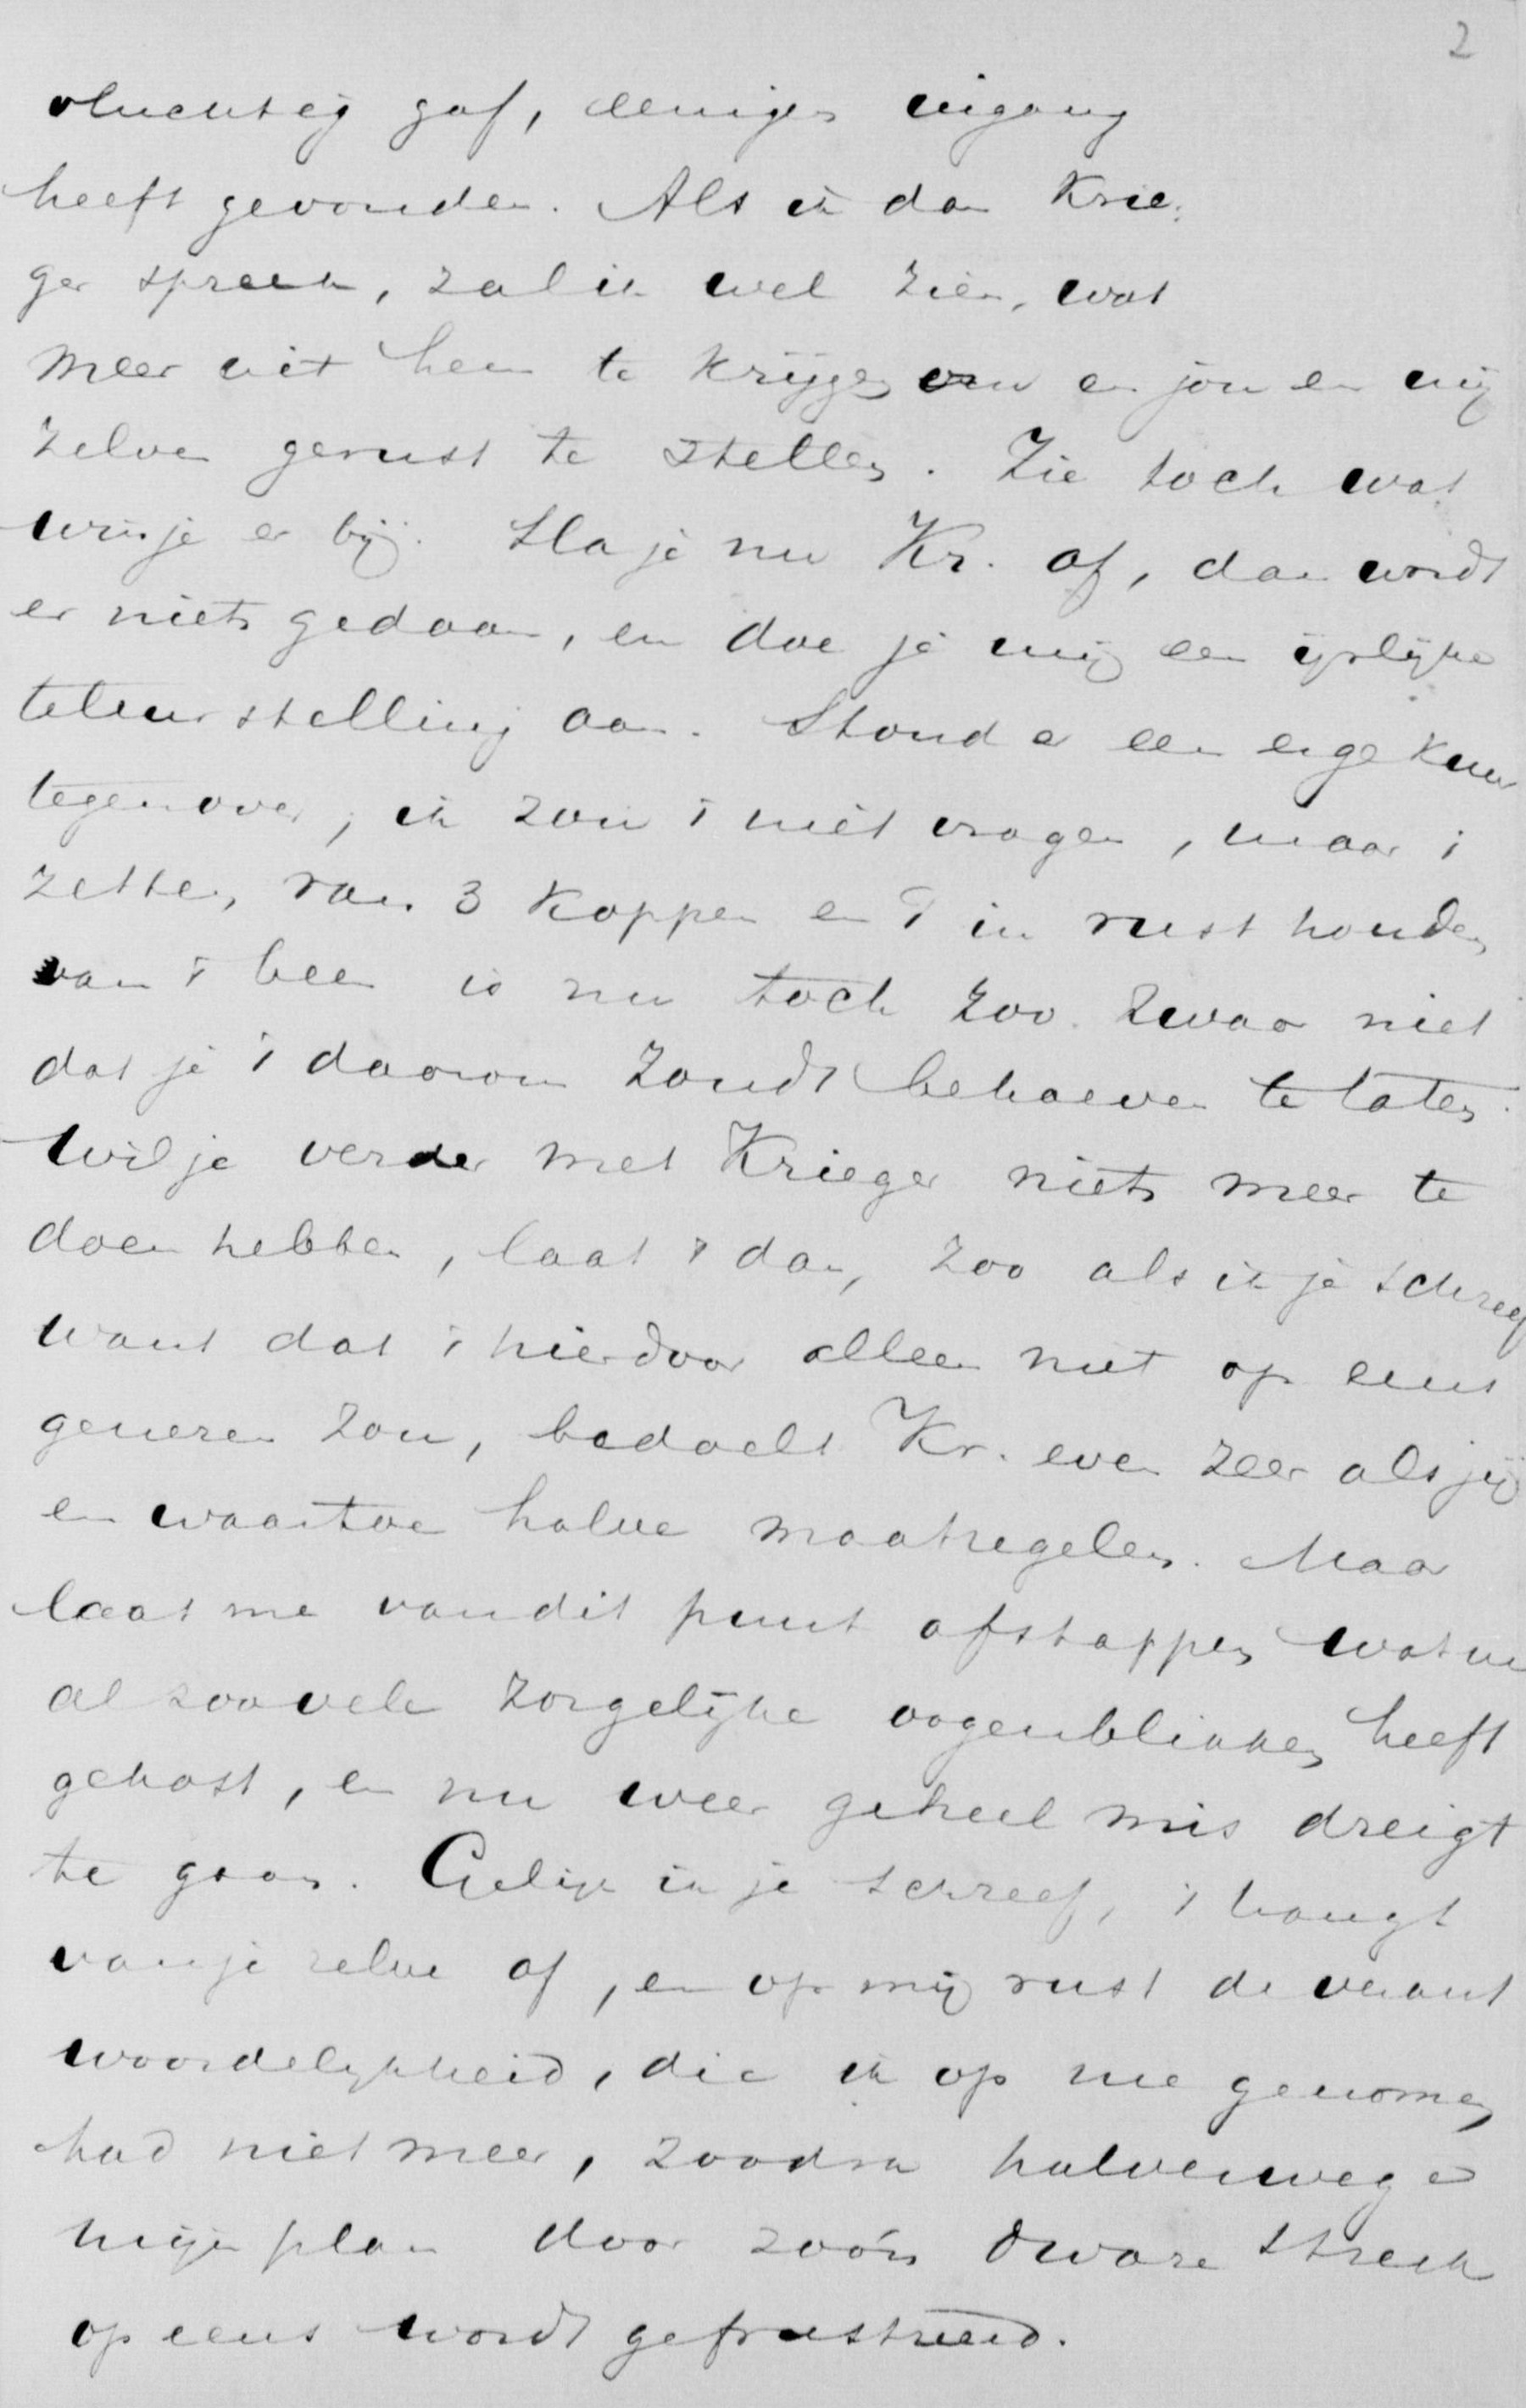 2
vluchtig gaf, eenigen ingang
heeft gevonden. Als ik dan Krie-
ger spreek, zal ik wel zien, wat
meer uit hem te krijgen om en jou en mij
zelven gerust te stellen. Zie toch wat
win je er bij. Sla je nu Kr. af, dan wordt
er niets gedaan, en doe je mij een ijslijke
teleurstelling aan. Stond er een erge kuur
tegenover, ik zou 't niet vragen, maar 't
zetten, van 3 koppen en 't in rust houden
van 't been is nu toch zoo zwaar niet
dat je 't daarom zoudt behoeven te laten.
Wil je verder met Krieger niets meer te
doen hebben, laat 't dan, zoo als ik je schreef
want dat 't hierdoor alleen niet op eens
genezen zou, bedoelt Kr. even zeer als jij
en waartoe halve maatregelen. Maar
laat me van dit punt afstappen wat me
al zoovele zorgelijke oogenblikken heeft
gekost, en nu weer geheel mis dreigt
te gaan. Gelijk ik je schreef, 't hangt
van je zelve af, en op mij rust de verant
woordelijkheid, die ik op me genomen
had niet meer, zoodra halverwege
mijn plan door zoo'n dware streek
op eens wordt gefrustreerd.